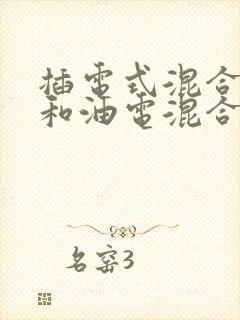 插電式混合
和油電混合
名窑3